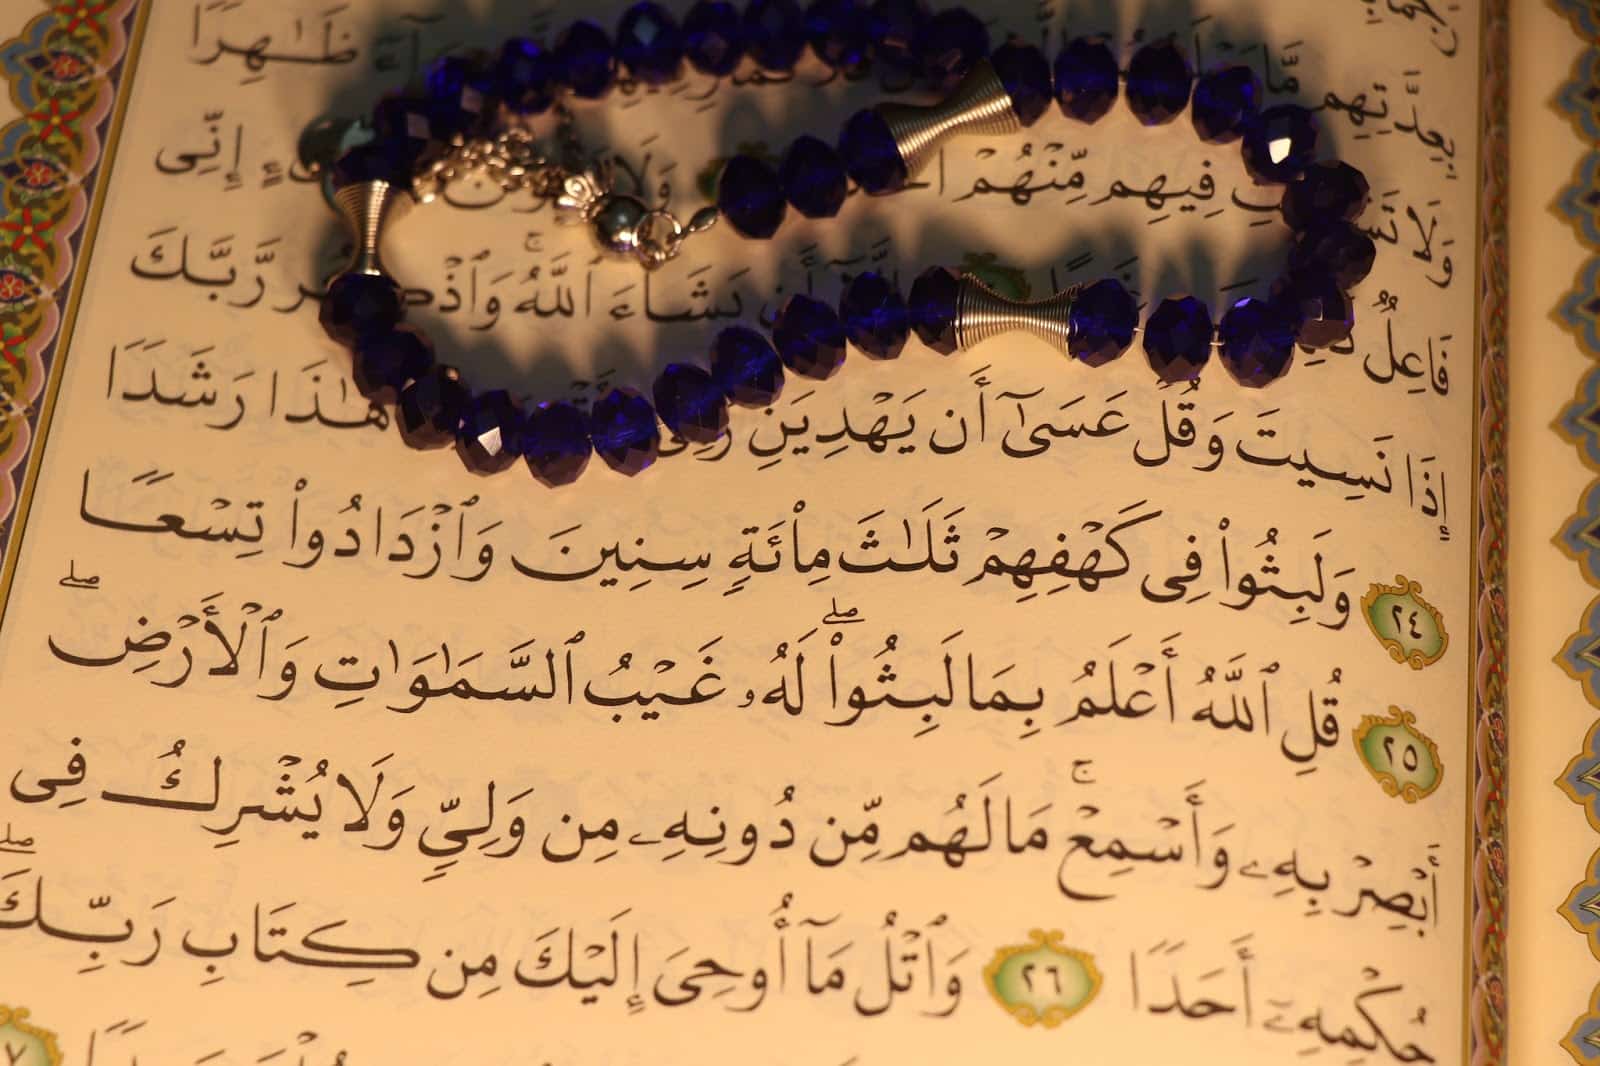 بِعِدَّتِهِم مَّا ظَـٰهِرًا
وَلَا فِيهِم مِّنْهُمْ وَلَا إِنِّى
فَاعِلٌ أَن يَشَآءَ ٱللَّهُ ۚ رَّبَّكَ
إِذَا نَسِيتَ وَقُلْ عَسَىٰٓ أَن يَهْدِيَنِ هَـٰذَا رَشَدًا
٢٤ وَلَبِثُوا۟ فِى كَهْفِهِمْ ثَلَـٰثَ مِا۟ئَةٍ سِنِينَ وَٱزْدَادُوا۟ تِسْعًا
٢٥ قُلِ ٱللَّهُ أَعْلَمُ بِمَا لَبِثُوا۟ ۖ لَهُۥ غَيْبُ ٱلسَّمَـٰوَٰتِ وَٱلْأَرْضِ ۖ
أَبْصِرْ بِهِۦ وَأَسْمِعْ ۚ مَا لَهُم مِّن دُونِهِۦ مِن وَلِىٍّ وَلَا يُشْرِكُ فِى
حُكْمِهِۦٓ أَحَدًا ٢٦ وَٱتْلُ مَآ أُوحِىَ إِلَيْكَ مِن كِتَابِ رَبِّكَ ۖ